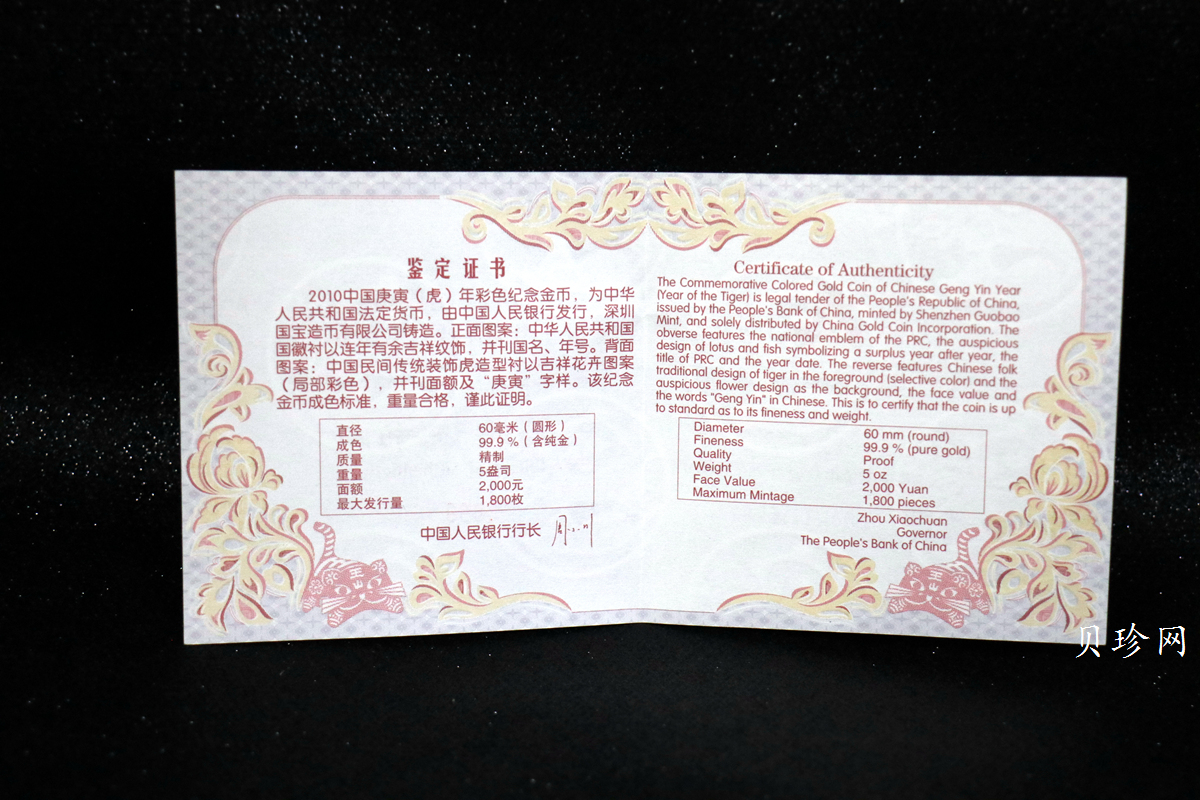 鉴定证书
2010中国庚寅（虎）年彩色纪念金币，为中华
人民共和国法定货币，由中国人民银行发行，深圳
国宝造币有限公司铸造。正面图案：中华人民共和国
国徽衬以连年有余吉祥纹饰，并刊国名、年号。背面
图案：中国民间传统装饰虎造型衬以吉祥花卉图案
（局部彩色），并刊面额及“庚寅”字样。该纪念
金币成色标准，重量合格，谨此证明。
直径 60毫米（圆形）
成色 99.9%（含纯金）
质量 精制
重量 5盎司
面额 2,000元
最大发行量 1,800枚
中国人民银行行长
Certificate of Authenticity
The Commemorative Colored Gold Coin of Chinese Geng Yin Year
(Year of the Tiger) is legal tender of the People's Republic of China,
issued by the People's Bank of China, minted by Shenzhen Guobao
Mint, and solely distributed by China Gold Coin Incorporation. The
obverse features the national emblem of the PRC, the auspicious
design of lotus and fish symbolizing a surplus year after year, the
title of PRC and the year date. The reverse features Chinese folk
traditional design of tiger in the foreground (selective color) and the
auspicious flower design as the background, the face value and
the words "Geng Yin" in Chinese. This is to certify that the coin is up
to standard as to its fineness and weight.
Diameter 60 mm (round)
Fineness 99.9 % (pure gold)
Quality Proof
Weight 5 oz
Face Value 2,000 Yuan
Maximum Mintage 1,800 pieces
Zhou Xiaochuan
Governor
The People's Bank of China
贝珍网